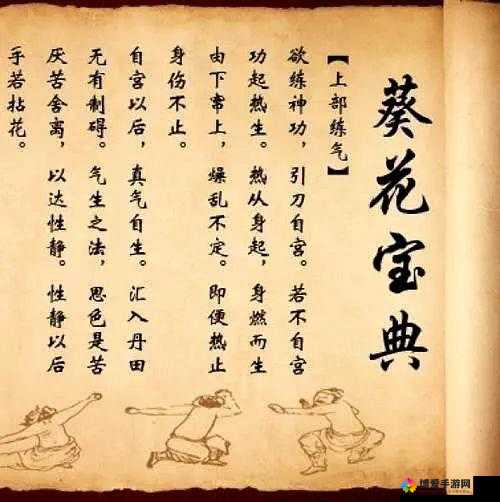 葵花宝典
【上部练气】
欲练神功，引刀自宫。若不自宫
功起热生。热从身起，身燃而生
由下窜上，燥乱不定。即便热止
身伤不止。
自宫以后，真气自生。汇入丹田
无有制碍。气生之法，思色是苦
厌苦舍离，以达性静。性静以后
手若拈花。
博爱手游网